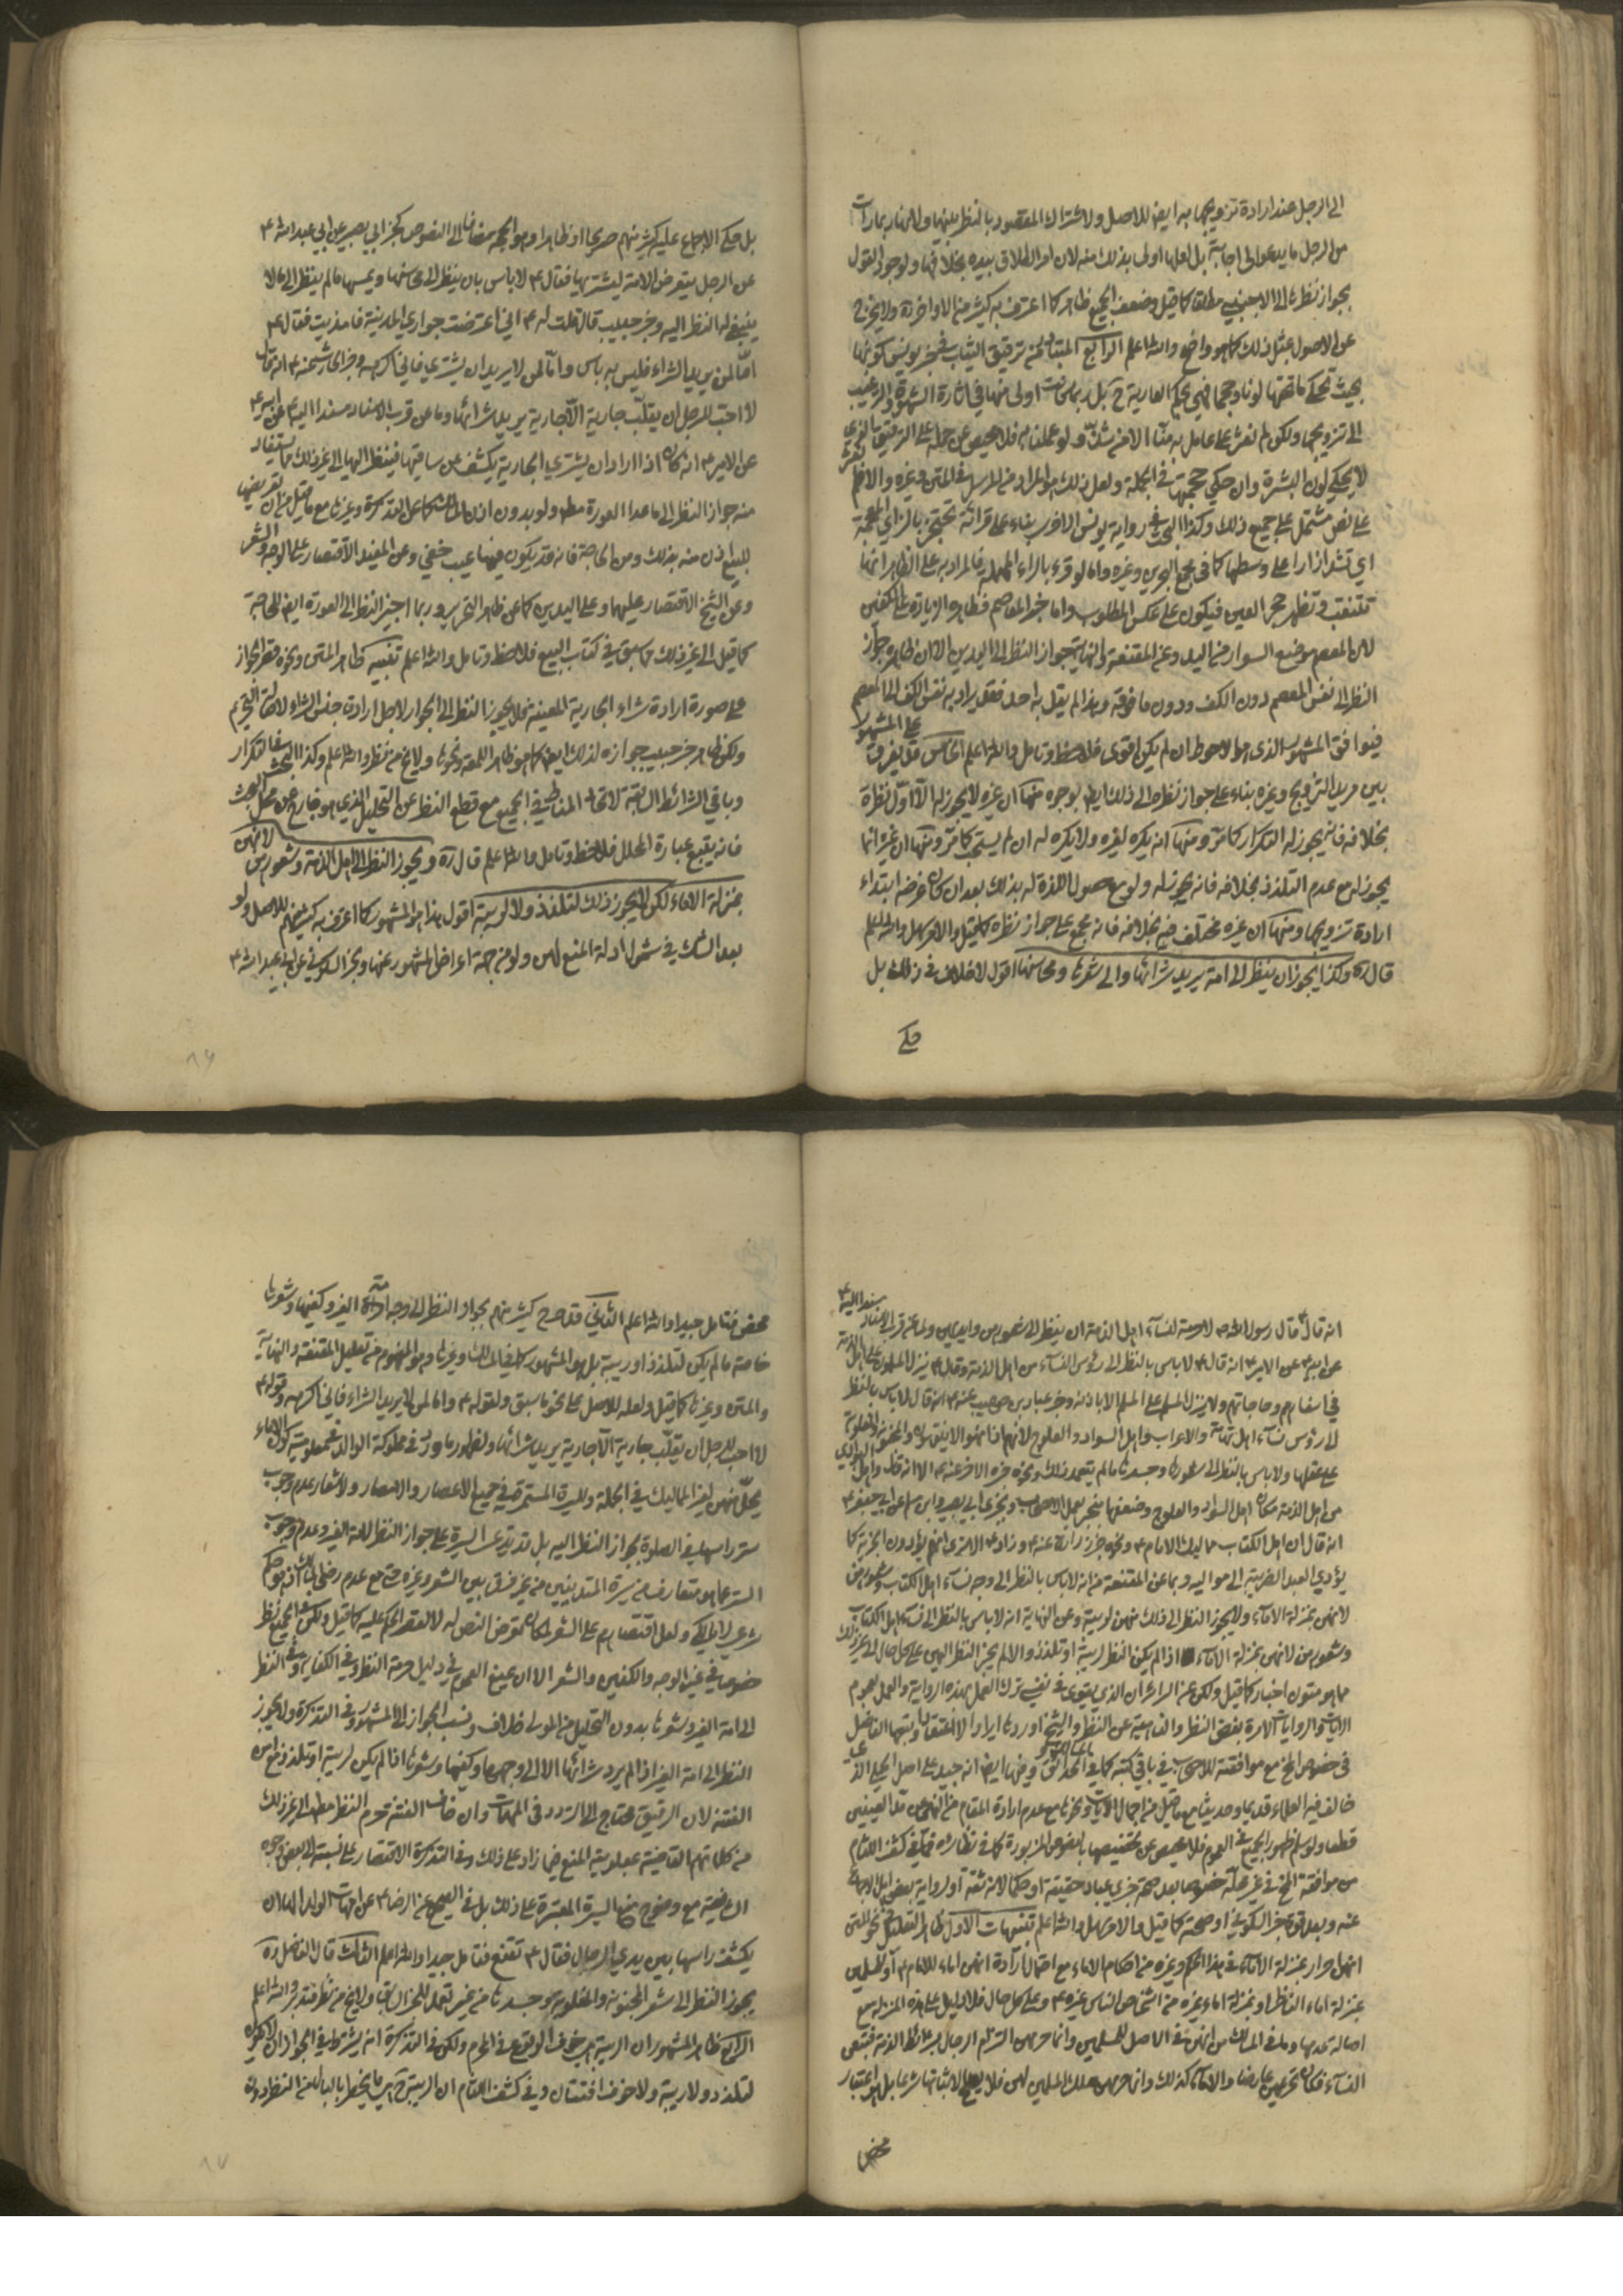 الى الرجل عند ارادة تزويجها به ايض للاصل ولاشتراك المقصود بالنظر بينهما ولانها ربما رأت
من الرجل ما يدعو الى اجابته بل لعلها اولى بذلك منه لان امر الطلاق بيده بخلافها ولوجود القول
بجواز نظرها الى الاجنبي مطلقا كما قيل وضعف الجميع ظاهر كما اعترف به كثير من الاواخر ره ولا يخرج
عن الاصول بمثل ذلك كما هو واضح والله اعلم الرابع المتبادر من ترقيق الثياب في خبر يونس كونها
بحيث تحكي ما تحتها لونا وحجما فهي بحكم العارية ح بل ربما كانت اولى منها في اثارة الشهوة والترغيب
الى تزويجها ولكن لم نعثر على عامل به منا الا من شذ ولو عملنا به فلا محيص عن حمله على الرقيق الذي
لا يحكي لون البشرة وان حكى حجمها في الجملة ولعل ذلك هو المراد من المرسل في المتن وغيره والا فلم نعثر
على نص مشتمل على جميع ذلك وكذا البحث في رواية يونس الاخرى بناء على قرائة تحتجز بالزاي المعجمة
اي تشد ازارا على وسطها كما في مجمع البحرين وغيره واما لو قرء بالراء المهملة فالمراد به على الظاهر انها
تتنقب وتظهر محجر العين فيكون على عكس المطلوب واما خبر المعاصم فظاهره الزيادة على الكفين
لان المعصم موضع السوار من اليد وعن المقنعة والنهاية جواز النظر الى اليدين الا ان ظاهره جواز
النظر الى نفس المعصم دون الكف ودون ما فوقه وهذا لم يقل به احد فقد يراد به نفس الكف الى المعصم
فيوافق المشهور الذي هو الاحوط ان لم يكن اقوى فلاحظ وتامل والله اعلم الخامس قد يفرق على المشهور
بين مريد التزويج وغيره بناء على جواز نظره الى ذلك ايض بوجوه منها ان غيره لا يجوز له الا اول نظرة
بخلافه فانه يجوز له التكرار كما مر ومنها انه يكره لغيره ولا يكره له ان لم يستحب كما مر ومنها ان غيره انما
يجوز له مع عدم التلذذ بخلافه فانه يجوز له ولو مع حصول اللذة له بذلك بعد ان كان غرضه ابتداء
ارادة تزويجها ومنها ان غيره مختلف فيه بخلافه فانه مجمع على جواز نظره كما قيل والامر سهل والله اعلم
قال ره وكذا يجوز ان ينظر الى امة يريد شرائها والى شعرها ومحاسنها اقول لا خلاف في ذلك بل
حكي
بل حكي الاجماع عليه كثير منهم صريحا او ظاهرا وهو الحجة مضافا الى النصوص كخبر ابي بصير عن ابي عبد الله ع
عن الرجل يتعرض الامة ليشتريها فقال ع لا باس بان ينظر الى محاسنها ويمسها ما لم ينظر الى ما لا
ينبغي له النظر اليه وخبر حبيب قال قلت له ع اني اعترضت جواري المدينة فامذيت فقال ع
اما لمن يريد الشراء فليس به باس واما لمن لا يريد ان يشتري فاني اكرهه وخبر الحارث عنه ع انه قال
لا احب للرجل ان يقلب جارية الا جارية يريد شرائها وما عن قرب الاسناد مسندا اليه ع عن ابيه ع
عن الامير ع انه كان اذا اراد ان يشتري الجارية يكشف عن ساقيها فينظر اليها الى غير ذلك مما يستفاد
منه جواز النظر الى ما عدا العورة مط ولو بدون اذن المالك كما عن التذكرة وغيرها مع ما قيل من ان تعريضها
للبيع اذن منه بذلك ومن الحاجة فانه قد يكون فيها عيب خفي وعن المفيد الاقتصار على الوجه والشعر
وعن الشيخ الاقتصار عليهما وعلى اليدين كما عن ظاهر التحرير وربما اجيز النظر الى العورة ايض للحاجة
كما قيل الى غير ذلك مما سبق في كتاب البيع فلاحظ وتامل والله اعلم تنبيه ظاهر المتن ونحوه قصر الجواز
على صورة ارادة شراء الجارية المعينة فلا يجوز النظر الى الجوار لاجل ارادة جنس الشراء لاصالة التحريم
ولكن ظاهر خبر حبيب جوازه لذلك ايض كما هو ظاهر اللمعة ونحوها ولا يخ من نظر والله اعلم وكذا البحث في التكرار
وباقي الشرائط السابقة لاتحاد المناط في الجميع مع قطع النظر عن التحليل الذي هو خارج عن محل البحث
فانه يتبع عبارة المحلل فلاحظ وتامل والله اعلم قال ره ويجوز النظر الى اهل الذمة وشعورهن لانهن
بمنزلة الاماء لكن لا يجوز ذلك لتلذذ ولا لريبة اقول هذا هو المشهور كما اعترف به كثير منهم للاصل ولو
بعد الشك في شمول ادلة المنع لهن ولو من جهة اعراض المشهور عنها وخبر السكوني عن ابي عبد الله ع
انه قال قال رسول الله ص لا حرمة لنساء اهل الذمة ان ينظر الى شعورهن وايديهن ولما عن قرب الاسناد مسندا اليه ع
عن ابيه ع عن الامير ع انه قال ع لا باس بالنظر الى رؤس النساء من اهل الذمة وقال ع ينزل المسلمون على اهل الذمة
في اسفارهم وحاجاتهم ولا ينزل المسلم على المسلم الا باذنه وخبر عباد بن صهيب عنه ع انه قال لا باس بالنظر
الى رؤس نساء اهل تهامة والاعراب واهل السواد والعلوج لانهم اذا نهوا لا ينتهون والمجنونة والمغلوبة
على عقلها ولا باس بالنظر الى شعرها وجسدها ما لم يتعمد ذلك ونحوه خبره الاخر عنه ع الا انه قال واهل البوادي
من اهل الذمة مكان اهل السواد والعلوج وضعفها منجبر بعمل الاصحاب وبخبري ابي بصير وابن مسلم عن ابي جعفر ع
انه قال ان اهل الكتاب مماليك الامام ع ونحوه خبر زرارة عنه ع وزاد ع الا ترى انهم يؤدون الجزية كما
يؤدي العبد الضريبة الى مواليه وبما عن المقنعة من انه لا باس بالنظر الى وجه نساء اهل الكتاب وشعورهن
لانهن بمنزلة الاماء ولا يجوز النظر الى ذلك منهن لريبة وعن النهاية انه لا باس بالنظر الى نساء اهل الكتاب
وشعورهن لانهن بمنزلة الاماء اذا لم يكن النظر لريبة او تلذذ والا لم يجز النظر اليهن على كل حال الى غير ذلك
مما هو متون اخبار كما قيل ولكن عن السرائر ان الذي يقوى في نفسي ترك العمل بهذه الرواية والعمل بعموم
الايات والروايات الامرة بغض النظر والناهية عن النظر والشيخ اوردها ايرادا لا اعتقادا وتبعهما الفاضل
في خصوص المخ مع موافقته للاصحاب في باقي كتبه كما في الحدائق وفيهما ايض انه جيد على اصل الحلي الذي
خالف فيه العلماء قديما وحديثا مع ما قيل من اجمال الايات ونحوها مع عدم ارادة المقام من النهي عن مد العينين
قطعا ولو سلم ظهور الجميع في العموم فلا محيص عن تخصيصها بالنصوص المزبورة كما في نظائره فما في كشف اللثام
من موافقة المخ في غير محله خصوصا بعد صحة خبري عباد حقيقة او حكما لانه ثقة او لرواية بعض اهل الاجماع
عنه وبعد قوة خبر السكوني او صحته كما قيل والامر سهل والله اعلم تنبيهات الاول ظاهر التعليل في نحو المتن
انهن حرائر بمنزلة الاماء في هذا الحكم وغيره من احكام الاماء مع احتمال ارادة انهن اماء للامام ع او للمسلمين
بمنزلة اماء الناظر او بمنزلة اماء غيره من اشخاص الناس غيره ع وعلى كل حال فلا دليل على هذه المنزلة مع
اصالة عدمها وما في المسالك من انهن في الاصل للمسلمين وانما حرمهن التزام الرجال بشرائط الذمة فتبعهم
النساء فكان تحريمهن عارضا والاماء كذلك وانما حرمهن ملك المسلمين لهن فلا يصلح لاثباتها شرعا بل هو اعتبار
محض
محض فتامل جيدا والله اعلم الثاني قد صرح كثير منهم بجواز النظر الى وجه امة الغير وكفيها وشعرها
خاصة ما لم يكن لتلذذ او ريبة بل هو المشهور كما في المسالك وغيرها وهو المفهوم من تعليل المقنعة والنهاية
والمتن وغيرها كما قيل ولعله للاصل على نحو ما سبق ولقوله ع واما لمن لا يريد الشراء فاني اكرهه وقوله ع
لا احب للرجل ان يقلب جارية الا جارية يريد شرائها ولظهور ما ورد في مملوكة الوالد في معلومية كون الاماء
يحل منهن لغير المماليك في الجملة وللسيرة المستمرة في جميع الاعصار والامصار ولاشعار عدم وجوب
ستر راسها في الصلوة بجواز النظر اليه بل قد يدعى السيرة على جواز النظر لامة الغير وعدم وجوب
الستر عما هو متعارف من سيرة المتدينين من غير فرق بين الشعر وغيره حتى مع عدم رضى المالك اذ هو حكم
شرعي لا مالكي ولعل اقتصارهم على الشعر لمكان تعرض النص له لا لقصر الحكم عليه كما قيل ولكن في الجميع نظر
خصوصا في غير الوجه والكفين والشعر الا ان يمنع العموم في دليل حرمة النظر وفي الكفاية وفي النظر
الى امة الغير وشعرها بدون التحليل من المولى خلاف ونسب الجواز الى المشهور وفي التذكرة ولا يجوز
النظر الى امة الغير اذا لم يرد شرائها الا الى وجهها وكفيها وشعرها اذا لم يكن لريبة او تلذذ مع امن
الفتنة لان الرقيق محتاج الى التردد في المهمات وان خاف الفتنة حرم النظر مط الى غير ذلك
من كلماتهم القاضية بمعلومية المنع فيما زاد على ذلك وفي التذكرة الاقتصار على نسبته الى بعض وجوه
الشافعية مع وضوح منع السيرة المعتبرة على ذلك بل في الصحيح عن الرضا ع عن امهات الاولاد الها ان
يكشف راسها بين يدي الرجال فقال ع تقنع فتامل جيدا والله اعلم الثالث قال الفاضل ره
يجوز النظر الى شعر المجنونة والمغلوبة وجسدها من غير تعمد للخبر السابق ولا يخ من نظر فتدبر والله اعلم
الرابع ظاهر المشهور ان الريبة هي خوف الوقوع في المحرم ولكن في التذكرة انه يشترط في الجواز ان لا يكون
لتلذذ ولا ريبة ولا خوف افتتان وفي كشف اللثام ان الريبة هي ما يخطر بالبال من النظر دون